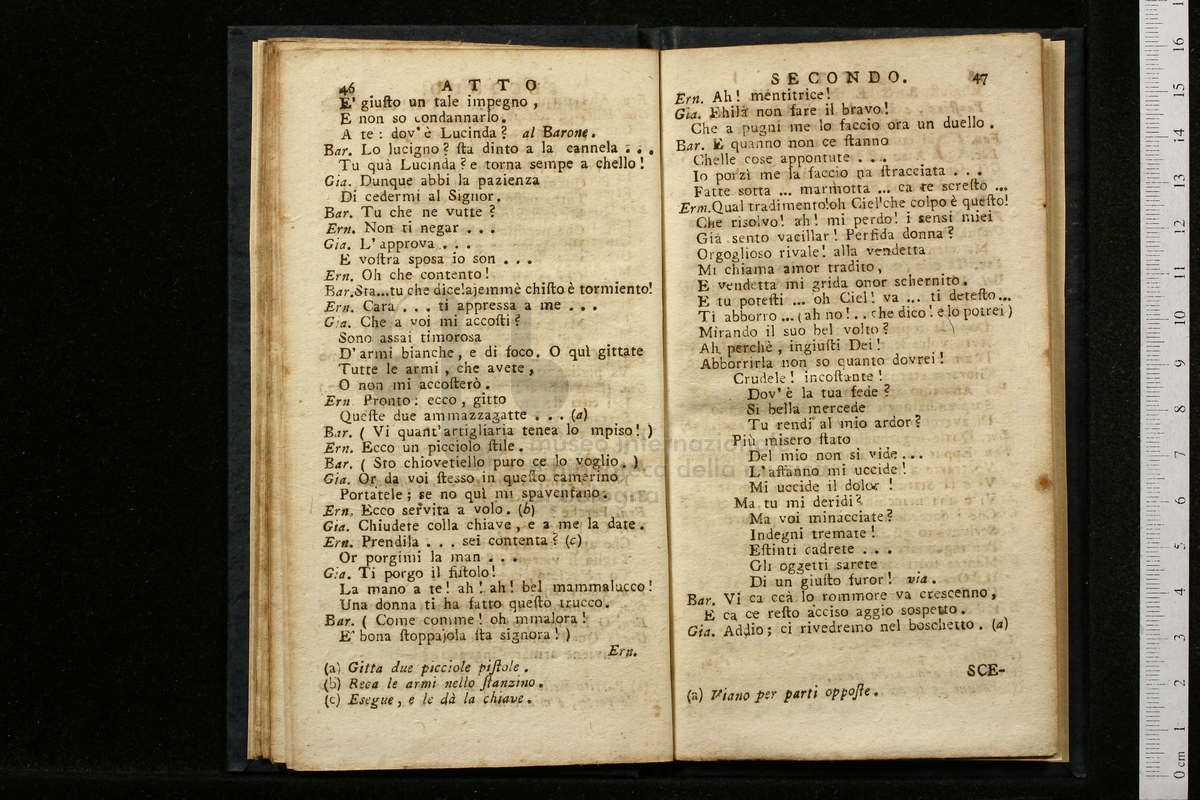 46 ATTO
E' giuſto un tale impegno ,
E non so condannarlo.
A te : dov' è Lucinda ? al Barone.
Bar. Lo lucigno ? ſta dinto a la cannela . . .
Tu quà Lucinda ? e torna sempe a chello !
Gia. Dunque abbi la pazienza
Di cedermi al Signor.
Bar. Tu che ne vutte ?
Ern. Non ti negar . . .
Gia. L' approva . . .
E voſtra sposa io son . . .
Ern. Oh che contento !
Bar. Sta...tu che dice!ajemmè chiſto è tormiento!
Ern. Cara . . . ti appressa a me . . .
Gia. Che a voi mi accoſti ?
Sono assai timorosa
D' armi bianche , e di foco. O quì gittate
Tutte le armi , che avete ,
O non mi accoſterò.
Ern Pronto : ecco , gitto
Queſte due ammazzagatte . . . (a)
Bar. ( Vi quant' artigliaria tenea lo mpiso ! )
Ern. Ecco un picciolo ſtile.
Bar. ( Sto chiovetiello puro ce lo voglio. )
Gia. Or da voi ſtesso in queſto camerino
Portatele ; se no quì mi spaventano.
Ern. Ecco servita a volo. (b)
Gia. Chiudete colla chiave , e a me la date.
Ern. Prendila . . . sei contenta ? (c)
Or porgimi la man . . .
Gia. Ti porgo il fiſtolo !
La mano a te ! ah ! ah ! bel mammalucco !
Una donna ti ha fatto queſto trucco.
Bar. ( Come comme ! oh mmalora !
E' bona ſtoppajola ſta signora ! )
Ern.
(a) Gitta due picciole piſtole.
(b) Reca le armi nello ſtanzino.
(c) Esegue , e le dà la chiave.
SECONDO. 47
Ern. Ah ! mentitrice !
Gia. Ehilà non fare il bravo !
Che a pugni me lo faccio ora un duello .
Bar. E quanno non ce ſtanno
Chelle cose appontute . . .
Io porzì me la faccio na ſtracciata . . .
Fatte sotta ... marmotta ... ca te screſto ...
Erm. Qual tradimento!oh Ciel!che colpo è queſto!
Che risolvo ! ah ! mi perdo ! i sensi miei
Già sento vacillar ! Perfida donna ?
Orgoglioso rivale ! alla vendetta
Mi chiama amor tradito ,
E vendetta mi grida onor schernito.
E tu poteſti ... oh Ciel ! va ... ti deteſto...
Ti abborro ... (ah no ! . . che dico ! e lo potrei )
Mirando il suo bel volto ?
Ah perchè , ingiuſti Dei !
Abborrirla non so quanto dovrei !
Crudele ! incoſtante !
Dov' è la tua fede ?
Sì bella mercede
Tu rendi al mio ardor ?
Più misero ſtato
Del mio non si vide . . .
L' affanno mi uccide !
Mi uccide il dolor !
Ma tu mi deridi ?
Ma voi minacciate ?
Indegni tremate !
Eſtinti cadrete . . .
Gli oggetti sarete
Di un giuſto furor ! via.
Bar. Vi ca ccà lo rommore va crescenno,
E ca ce reſto acciso aggio sospetto.
Gia. Addio ; ci rivedremo nel boschetto. (a)
SCE-
(a) Viano per parti oppoſte.